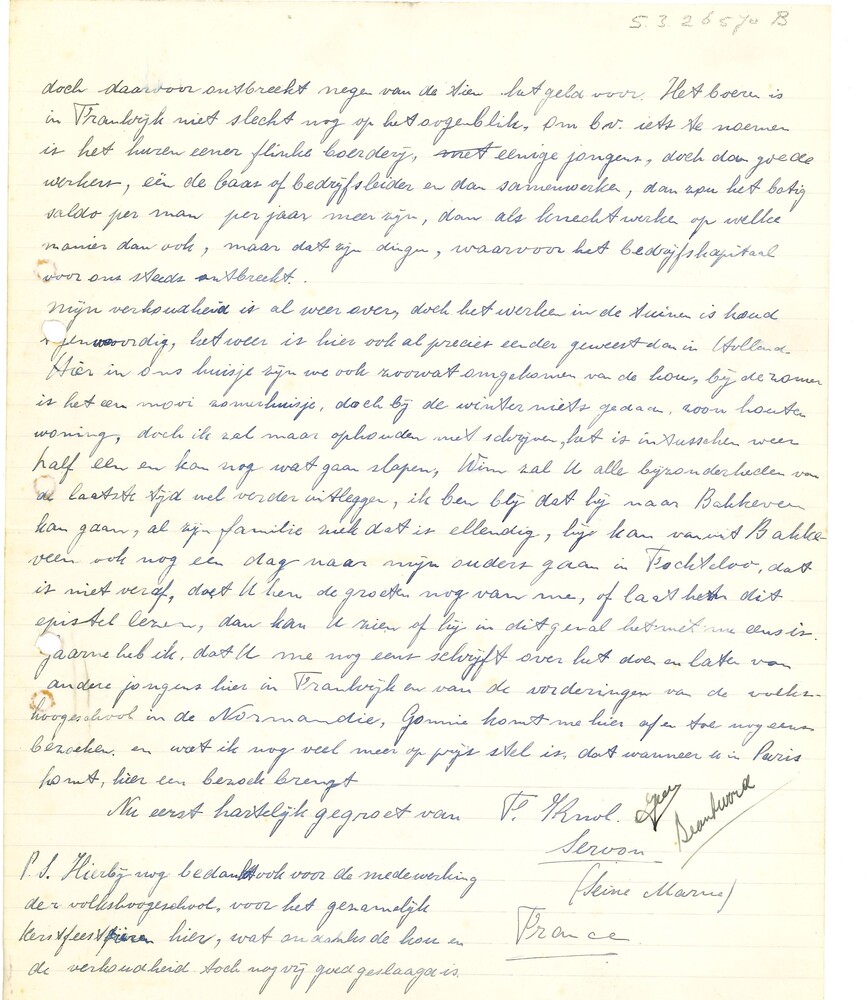 5.3.26570 B
doch daarvoor ontbreekt negen van de tien het geld voor. Het boeren is
in Frankrijk niet slecht nog op het oogenblik, om b.v. iets te noemen
is het huren eener flinke boerderij, met eenige jongens, doch dan goede
werkers, één de baas of bedrijfsleider en dan samenwerken, dan zou het batig
saldo per man per jaar meer zijn, dan als knecht werken op welke
manier dan ook, maar dat zijn dingen, waarvoor het bedrijfskapitaal
voor ons steeds ontbreekt.
Mijn verkoudheid is al weer over, doch het werken in de tuinen is koud
tegenwoordig, het weer is hier ook al precies eender geweest dan in Holland.
Hier in ons huisje zijn we ook zoowat omgekomen van de kou, bij de zomer
is het een mooi zomerhuisje, doch bij de winter niets gedaan, zoon houten
woning, doch ik zal maar ophouden met schrijven, het is intusschen weer
half een en kan nog wat gaan slapen, Wim zal U alle bijzonderheden van
de laatste tijd wel verder uitleggen, ik ben blij dat hij naar Bakkeveen
kan gaan, al zijn familie ziek dat is ellendig, hij kan vanuit Bakke
veen ook nog een dag naar mijn ouders gaan in Fochteloo, dat
is niet veraf, doet U hen de groeten nog van me, of laat hem dit
epistel lezen, dan kan U zien of hij in dit geval het met me eens is.
gaarne heb ik, dat U me nog eens schrijft over het doen en laten van
andere jongens hier in Frankrijk en van de vorderingen van de volks-
hoogeschool in de Normandie, Gonnie komt me hier af en toe nog eens
bezoeken, en wat ik nog veel meer op prijs stel is, dat wanneer u in Paris
komt, hier een bezoek brengt
Nu eerst hartelijk gegroet van F. Knol.
Beantwoord
Servon
(Seine Marne)
France
P.S. Hierbij nog bedankt ook voor de medewerking
der volkshoogeschool, voor het gezamelijk
kerstfeest vieren hier, wat ondanks de kou en
de verkoudheid toch nog vrij goed geslaagd is.